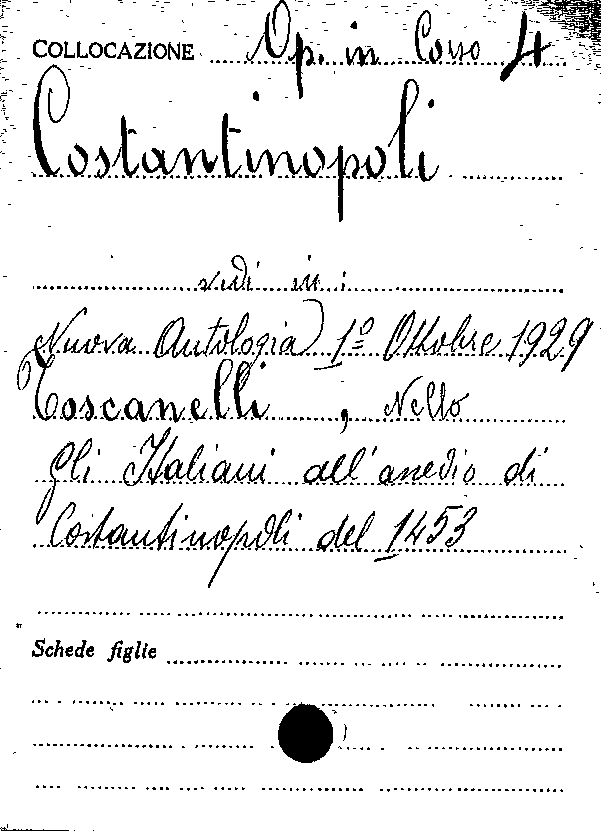 COLLOCAZIONE Op. in Corso 4
Costantinopoli
vedi in:
Nuova Antologia) 1º Ottobre 1929
Toscanelli, Nello
Gli Italiani all'assedio di
Costantinopoli del 1453
Schede figlie